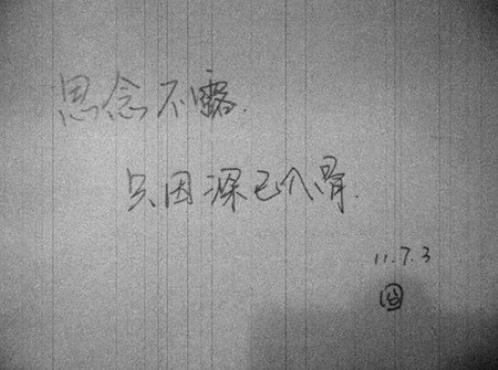 思念不露.
只因深已入骨.
11.7.3
囧